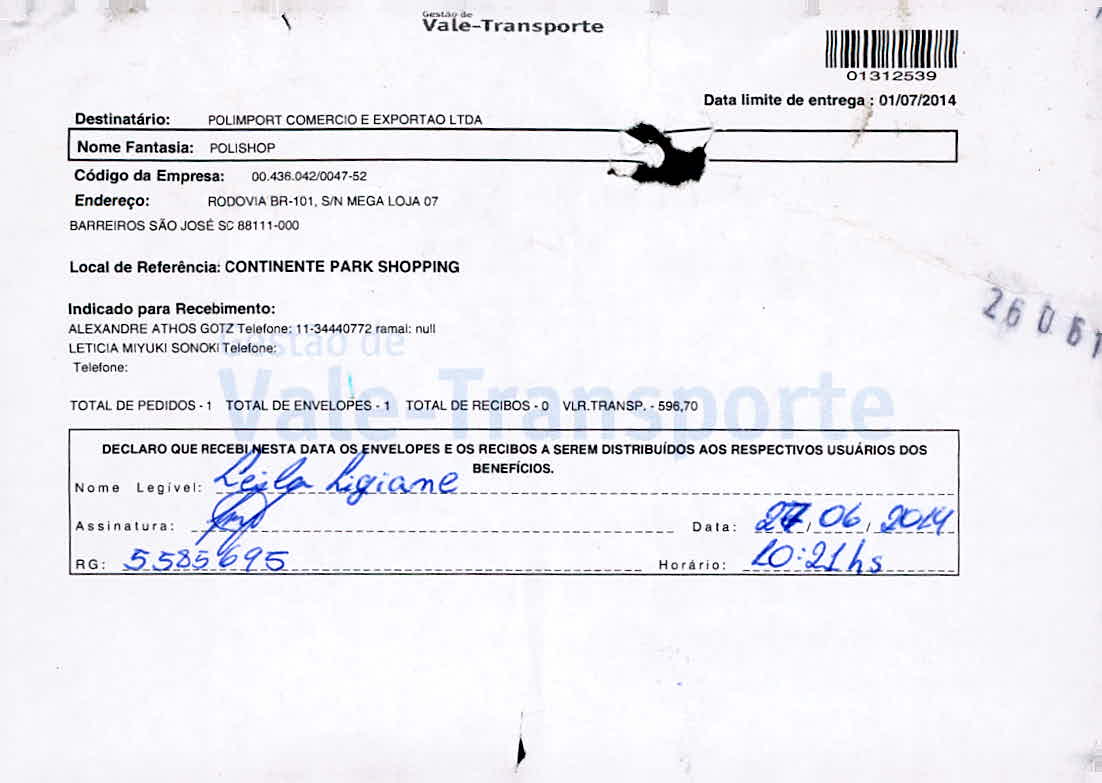 Gestão de
Vale-Transporte
01312539
Data limite de entrega : 01/07/2014
Destinatário: POLIMPORT COMERCIO E EXPORTAO LTDA
Nome Fantasia: POLISHOP
Código da Empresa: 00.436.042/0047-52
Endereço: RODOVIA BR-101, S/N MEGA LOJA 07
BARREIROS SÃO JOSÉ SC 88111-000
Local de Referência: CONTINENTE PARK SHOPPING
Indicado para Recebimento:
ALEXANDRE ATHOS GOTZ Telefone: 11-34440772 ramal: null
LETICIA MIYUKI SONOKI Telefone:
Telefone:
26 06 1
Gestão de
Vale-Transporte
TOTAL DE PEDIDOS - 1 TOTAL DE ENVELOPES - 1 TOTAL DE RECIBOS - 0 VLR.TRANSP. - 596,70
DECLARO QUE RECEBI NESTA DATA OS ENVELOPES E OS RECIBOS A SEREM DISTRIBUÍDOS AOS RESPECTIVOS USUÁRIOS DOS
BENEFÍCIOS.
Nome Legível: Leila Ligiane
Assinatura: Data: 27/06/2014
RG: 5585695 Horário: 10:21hs